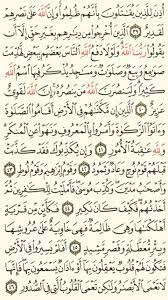 أُذِنَ لِلَّذِينَ يُقَٰتَلُونَ بِأَنَّهُمْ ظُلِمُوا۟ وَإِنَّ ٱللَّهَ عَلَىٰ نَصْرِهِمْ
لَقَدِيرٌ ٣٩ ٱلَّذِينَ أُخْرِجُوا۟ مِن دِيَٰرِهِم بِغَيْرِ حَقٍّ إِلَّآ أَن
يَقُولُوا۟ رَبُّنَا ٱللَّهُ وَلَوْلَا دَفْعُ ٱللَّهِ ٱلنَّاسَ بَعْضَهُم بِبَعْضٍ لَّهُدِّمَتْ
صَوَٰمِعُ وَبِيَعٌ وَصَلَوَٰتٌ وَمَسَٰجِدُ يُذْكَرُ فِيهَا ٱسْمُ ٱللَّهِ
كَثِيرًا وَلَيَنصُرَنَّ ٱللَّهُ مَن يَنصُرُهُۥٓ إِنَّ ٱللَّهَ لَقَوِىٌّ عَزِيزٌ
٤٠ ٱلَّذِينَ إِن مَّكَّنَّٰهُمْ فِى ٱلْأَرْضِ أَقَامُوا۟ ٱلصَّلَوٰةَ
وَءَاتَوُا۟ ٱلزَّكَوٰةَ وَأَمَرُوا۟ بِٱلْمَعْرُوفِ وَنَهَوْا۟ عَنِ ٱلْمُنكَرِ
وَلِلَّهِ عَٰقِبَةُ ٱلْأُمُورِ ٤١ وَإِن يُكَذِّبُوكَ فَقَدْ كَذَّبَتْ
قَبْلَهُمْ قَوْمُ نُوحٍ وَعَادٌ وَثَمُودُ ٤٢ وَقَوْمُ إِبْرَٰهِيمَ وَقَوْمُ لُوطٍ ٤٣
وَأَصْحَٰبُ مَدْيَنَ وَكُذِّبَ مُوسَىٰ فَأَمْلَيْتُ لِلْكَٰفِرِينَ ثُمَّ
أَخَذْتُهُمْ فَكَيْفَ كَانَ نَكِيرِ ٤٤ فَكَأَيِّن مِّن قَرْيَةٍ
أَهْلَكْنَٰهَا وَهِىَ ظَالِمَةٌ فَهِىَ خَاوِيَةٌ عَلَىٰ عُرُوشِهَا
وَبِئْرٍ مُّعَطَّلَةٍ وَقَصْرٍ مَّشِيدٍ ٤٥ أَفَلَمْ يَسِيرُوا۟ فِى ٱلْأَرْضِ
فَتَكُونَ لَهُمْ قُلُوبٌ يَعْقِلُونَ بِهَآ أَوْ ءَاذَانٌ يَسْمَعُونَ بِهَا فَإِنَّهَا
لَا تَعْمَى ٱلْأَبْصَٰرُ وَلَٰكِن تَعْمَى ٱلْقُلُوبُ ٱلَّتِى فِى ٱلصُّدُورِ ٤٦